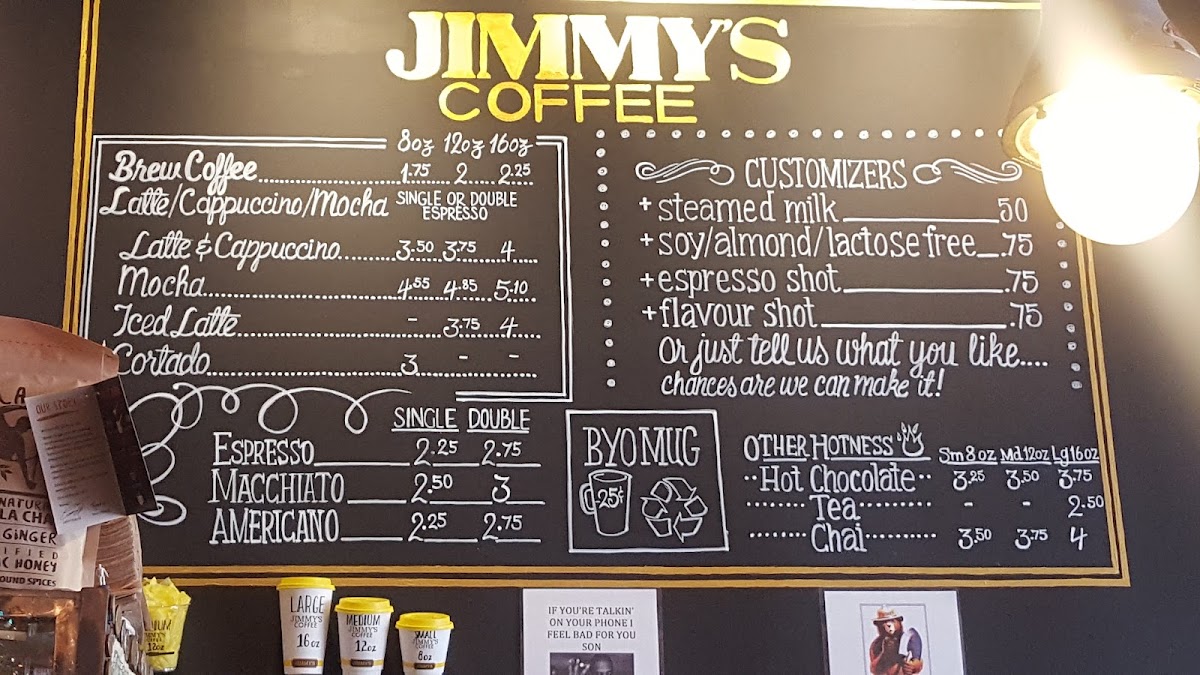 JIMMY'S
COFFEE
8oz 12oz 16oz
Brew Coffee 1.75 2 2.25
Latte/Cappuccino/Mocha SINGLE OR DOUBLE
ESPRESSO
Latte & Cappuccino 3.50 3.75 4
Mocha 4.55 4.85 5.10
Iced Latte - 3.75 4
Cortado 3 - -
SINGLE DOUBLE
ESPRESSO 2.25 2.75
MACCHIATO 2.50 3
AMERICANO 2.25 2.75
CUSTOMIZERS
+ steamed milk 50
+ soy/almond/lactose free .75
+ espresso shot .75
+ flavour shot .75
Or just tell us what you like....
chances are we can make it!
BYO MUG
25¢
OTHER HOTNESS Sm 8 oz Md 12oz Lg 16oz
Hot Chocolate 3.25 3.50 3.75
Tea - - 2.50
Chai 3.50 3.75 4
OUR STORY
LA CHA
GINGER
HONEY
SPICES
12oz
LARGE
JIMMY'S
COFFEE
16 oz
JIMMY'S
MEDIUM
JIMMY'S
COFFEE
12oz
SMALL
JIMMY'S
COFFEE
8oz
IF YOU'RE TALKIN'
ON YOUR PHONE I
FEEL BAD FOR YOU
SON